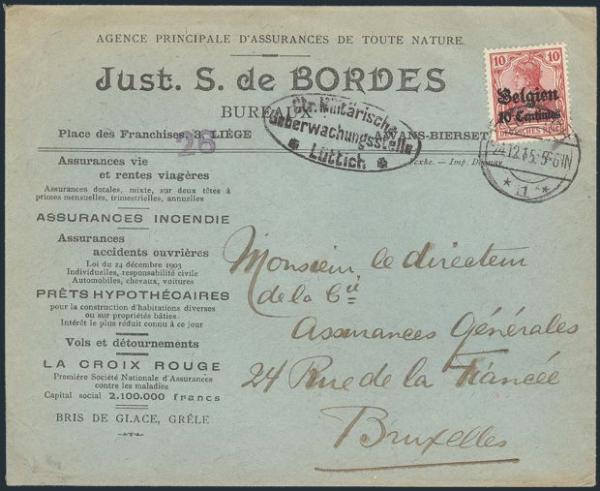 AGENCE PRINCIPALE D'ASSURANCES DE TOUTE NATURE.
Just. S. de BORDES
BUREAUX
Place des Franchises, 3, LIÉGE
AWANS-BIERSET
26
Str. Militärische
Ueberwachungsstelle
Lüttich
10 10
Belgien
10 Centimes
24.12.15. 5-6 N
* 1 *
Imp.
Assurances vie
et rentes viagères
Assurances dotales, mixte, sur deux têtes à
primes mensuelles, trimestrielles, annuelles
ASSURANCES INCENDIE
Assurances
accidents ouvrières
Loi du 24 décembre 1903
Individuelles, responsabilité civile
Automobiles, chevaux, voitures
PRÊTS HYPOTHÉCAIRES
pour la construction d'habitations diverses
ou sur propriétés bâties.
Intérêt le plus réduit connu à ce jour
Vols et détournements
LA CROIX ROUGE
Première Société Nationale d'Assurances
contre les maladies
Capital social 2.100.000 francs
BRIS DE GLACE, GRÊLE
Monsieur le directeur
de la Cie
Assurances Générales
24 Rue de la Fiancée
Bruxelles